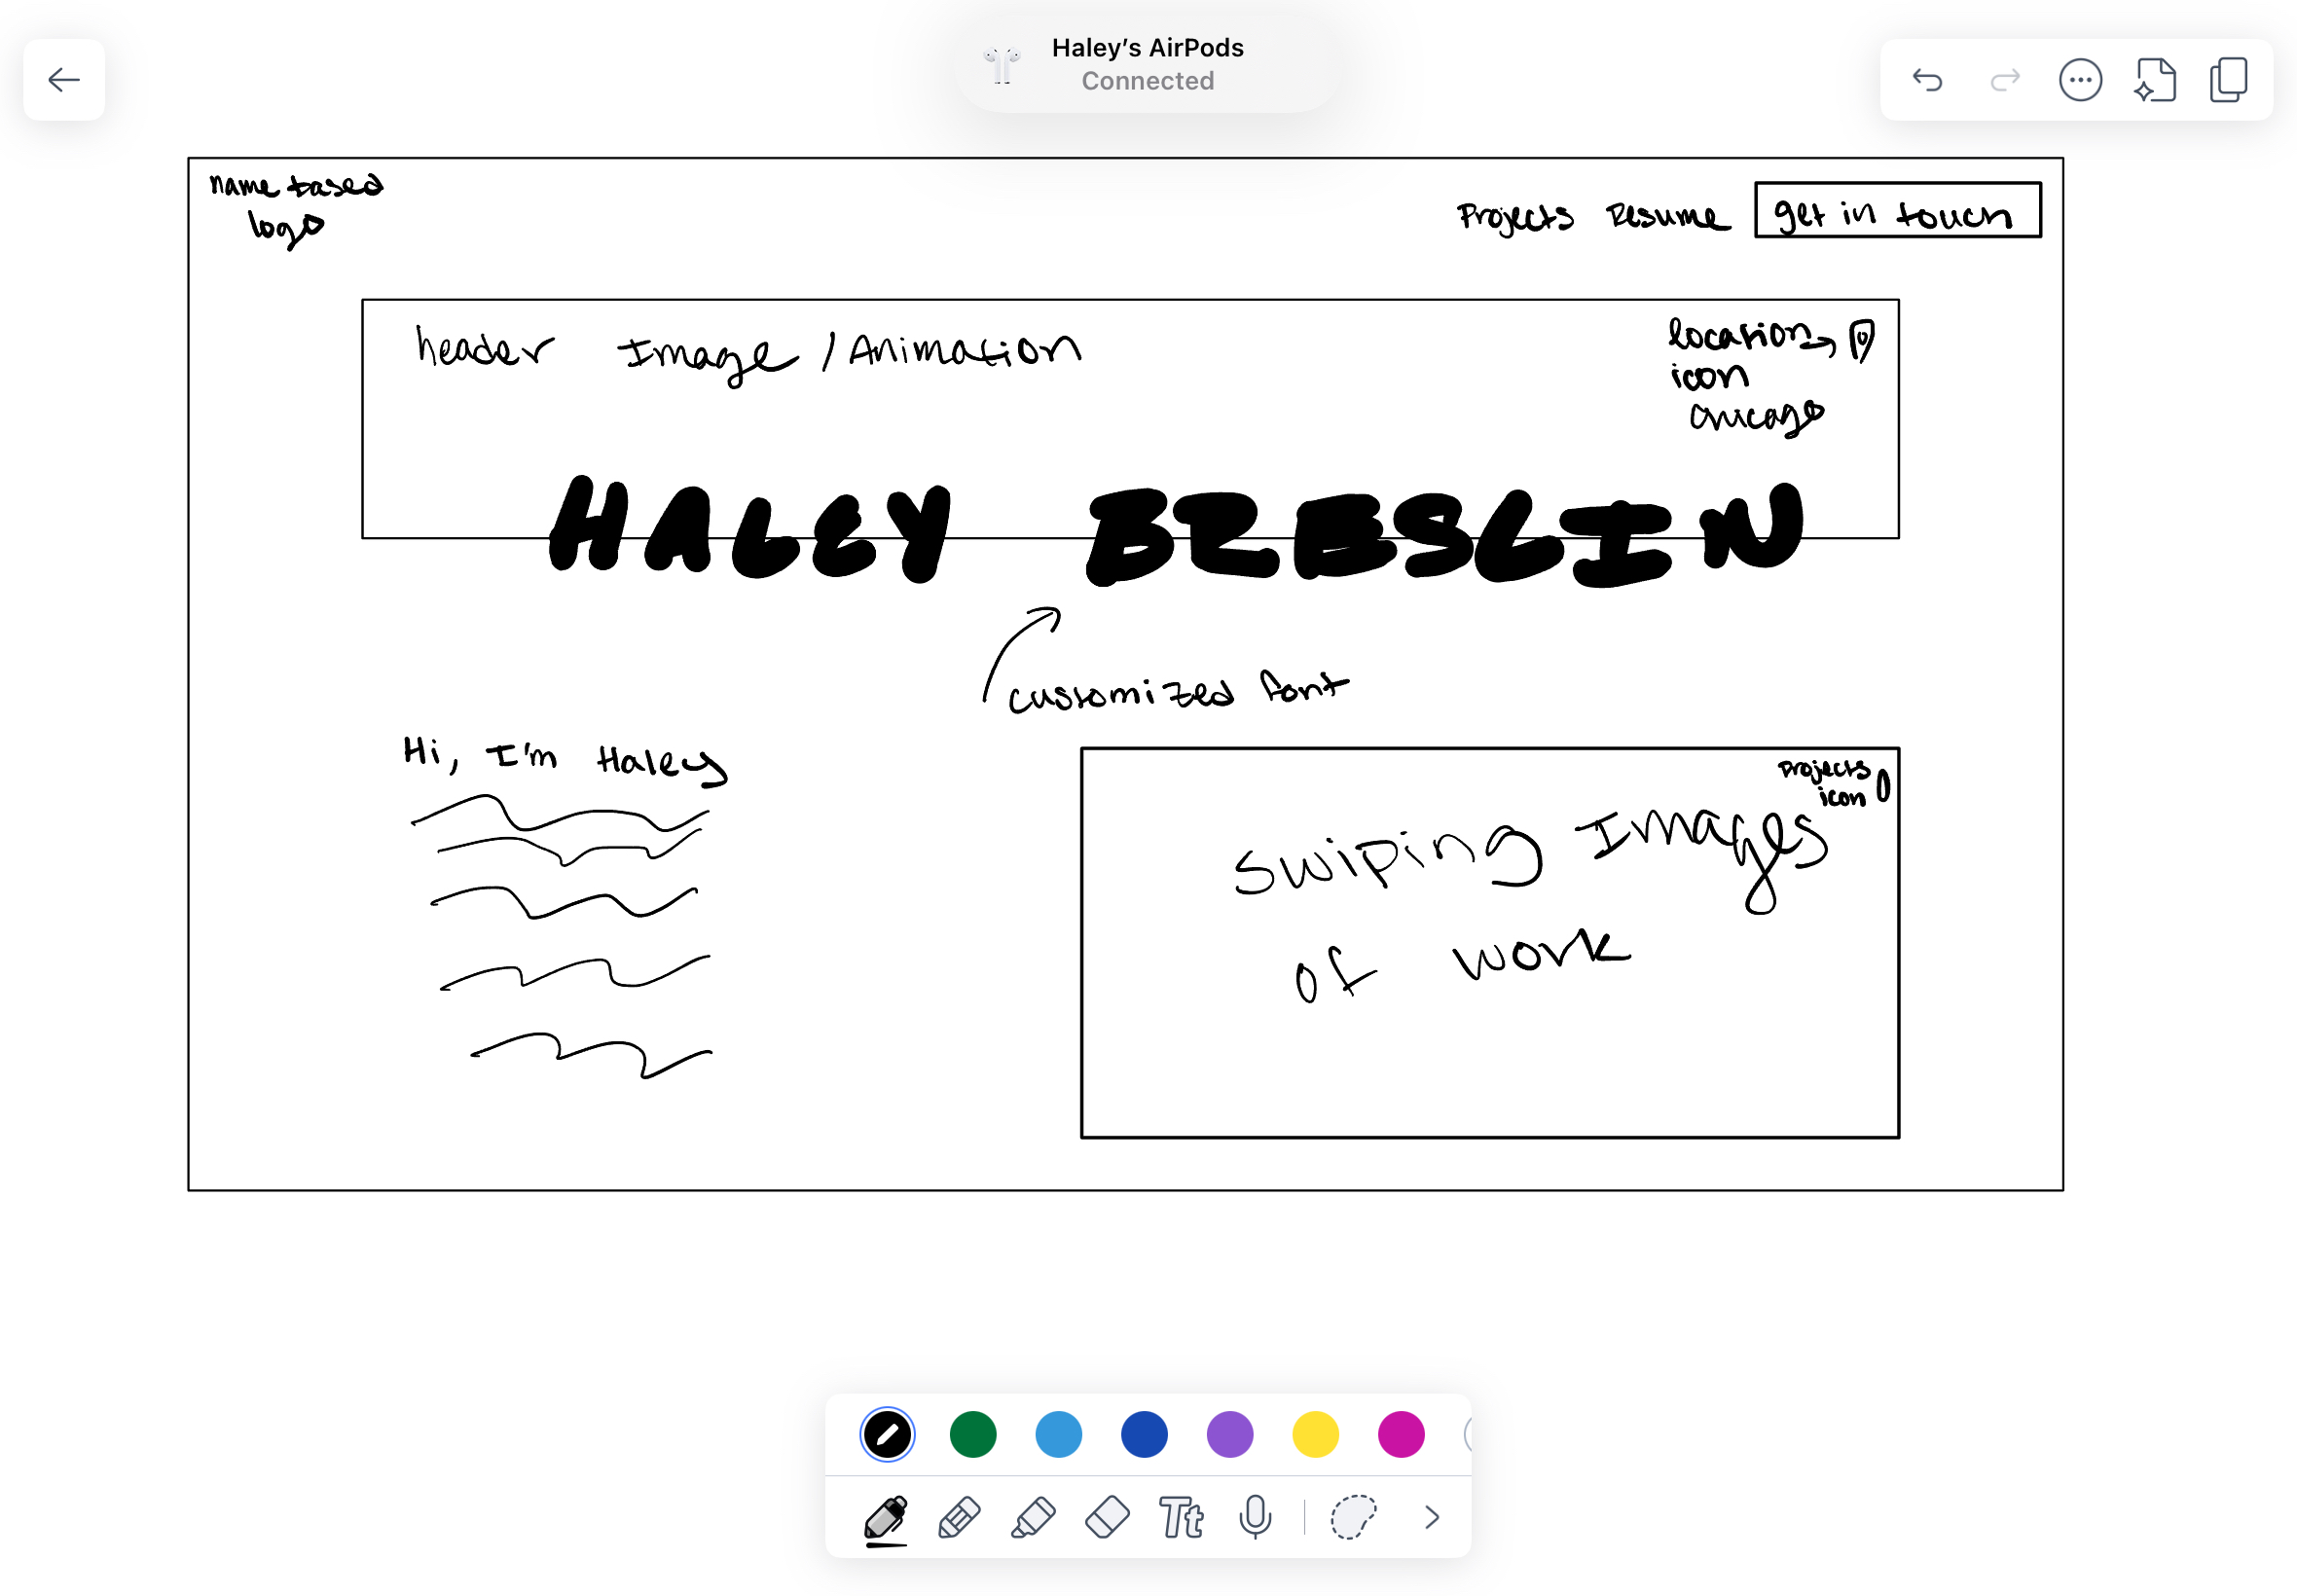 Haley's AirPods
Connected
name based
logo
Projects Resume get in touch
header Image / Animation
location
icon
chicago
HALEY BRESLIN
customized font
Hi, I'm Haley
projects
icon
Swiping Images
of work
Tt